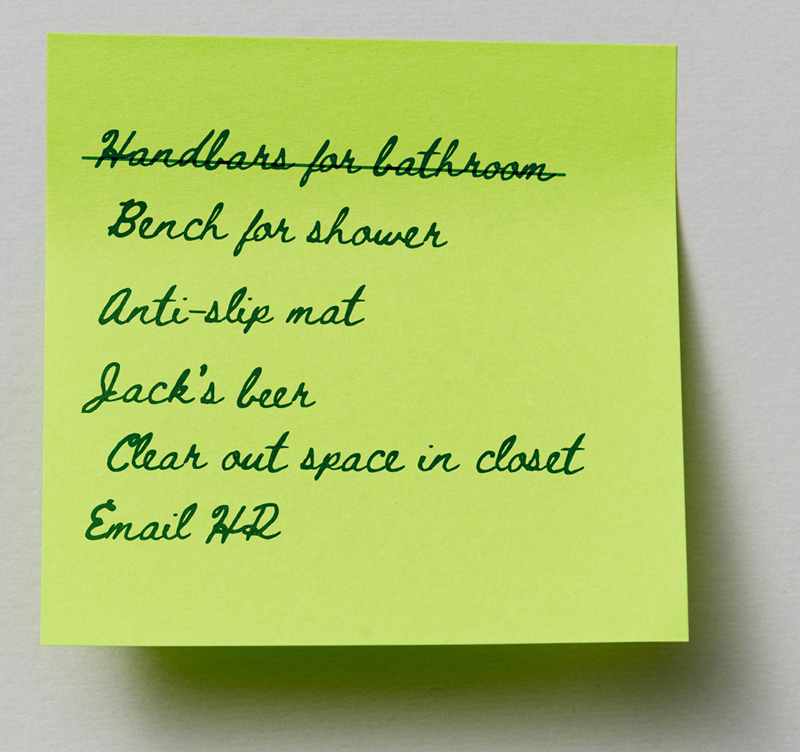 Handbars for bathroom
Bench for shower
Anti-slip mat
Jack's beer
Clear out space in closet
Email HR